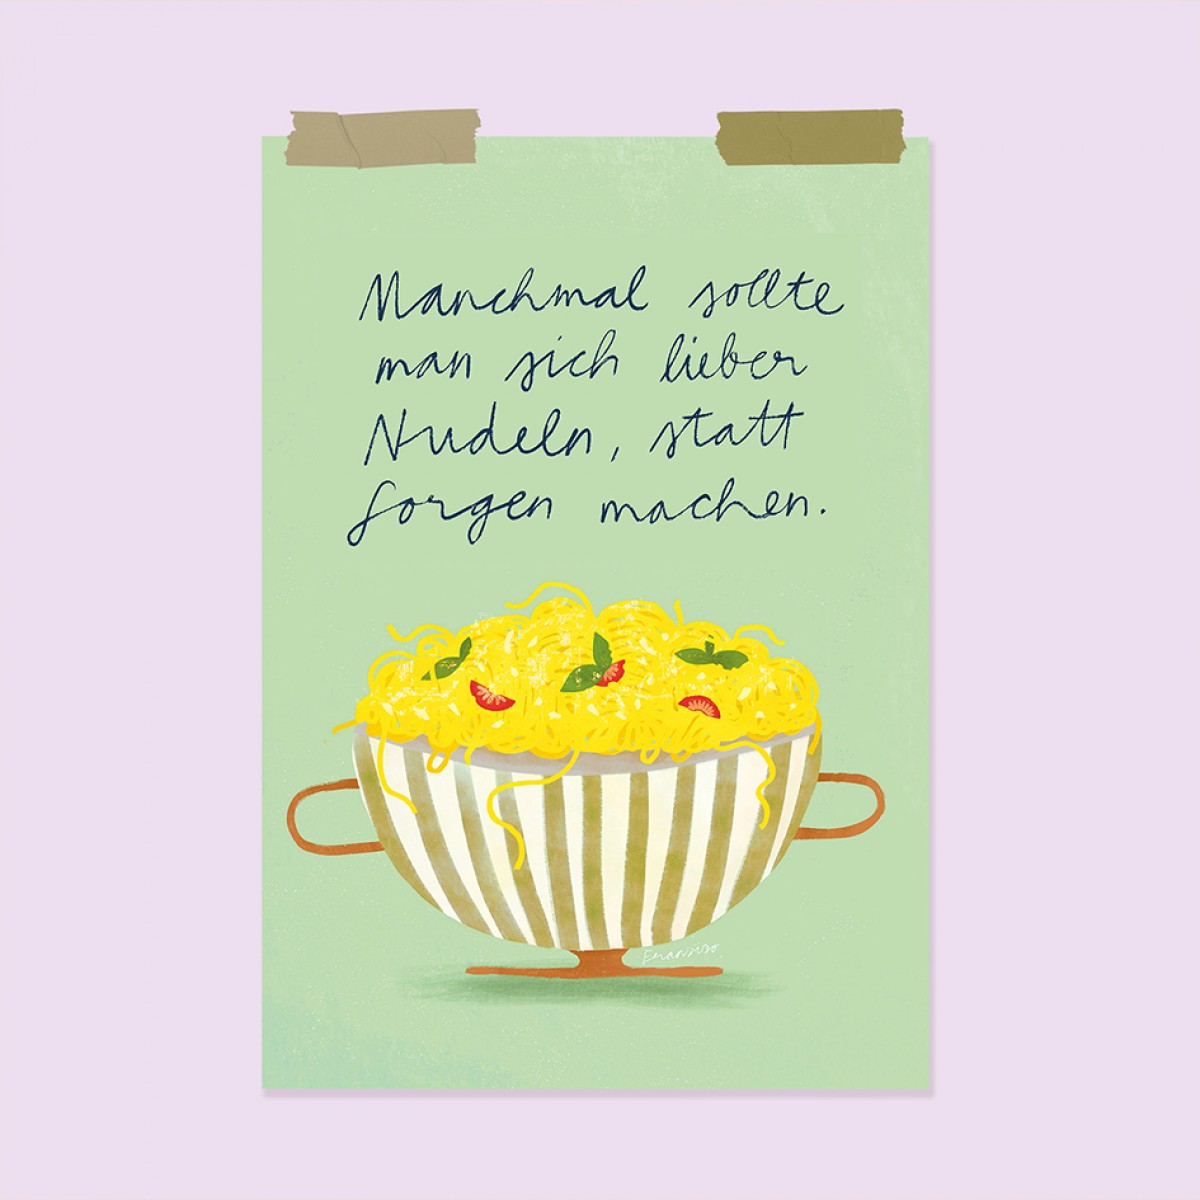 Manchmal sollte
man sich lieber
Nudeln, statt
Sorgen machen.